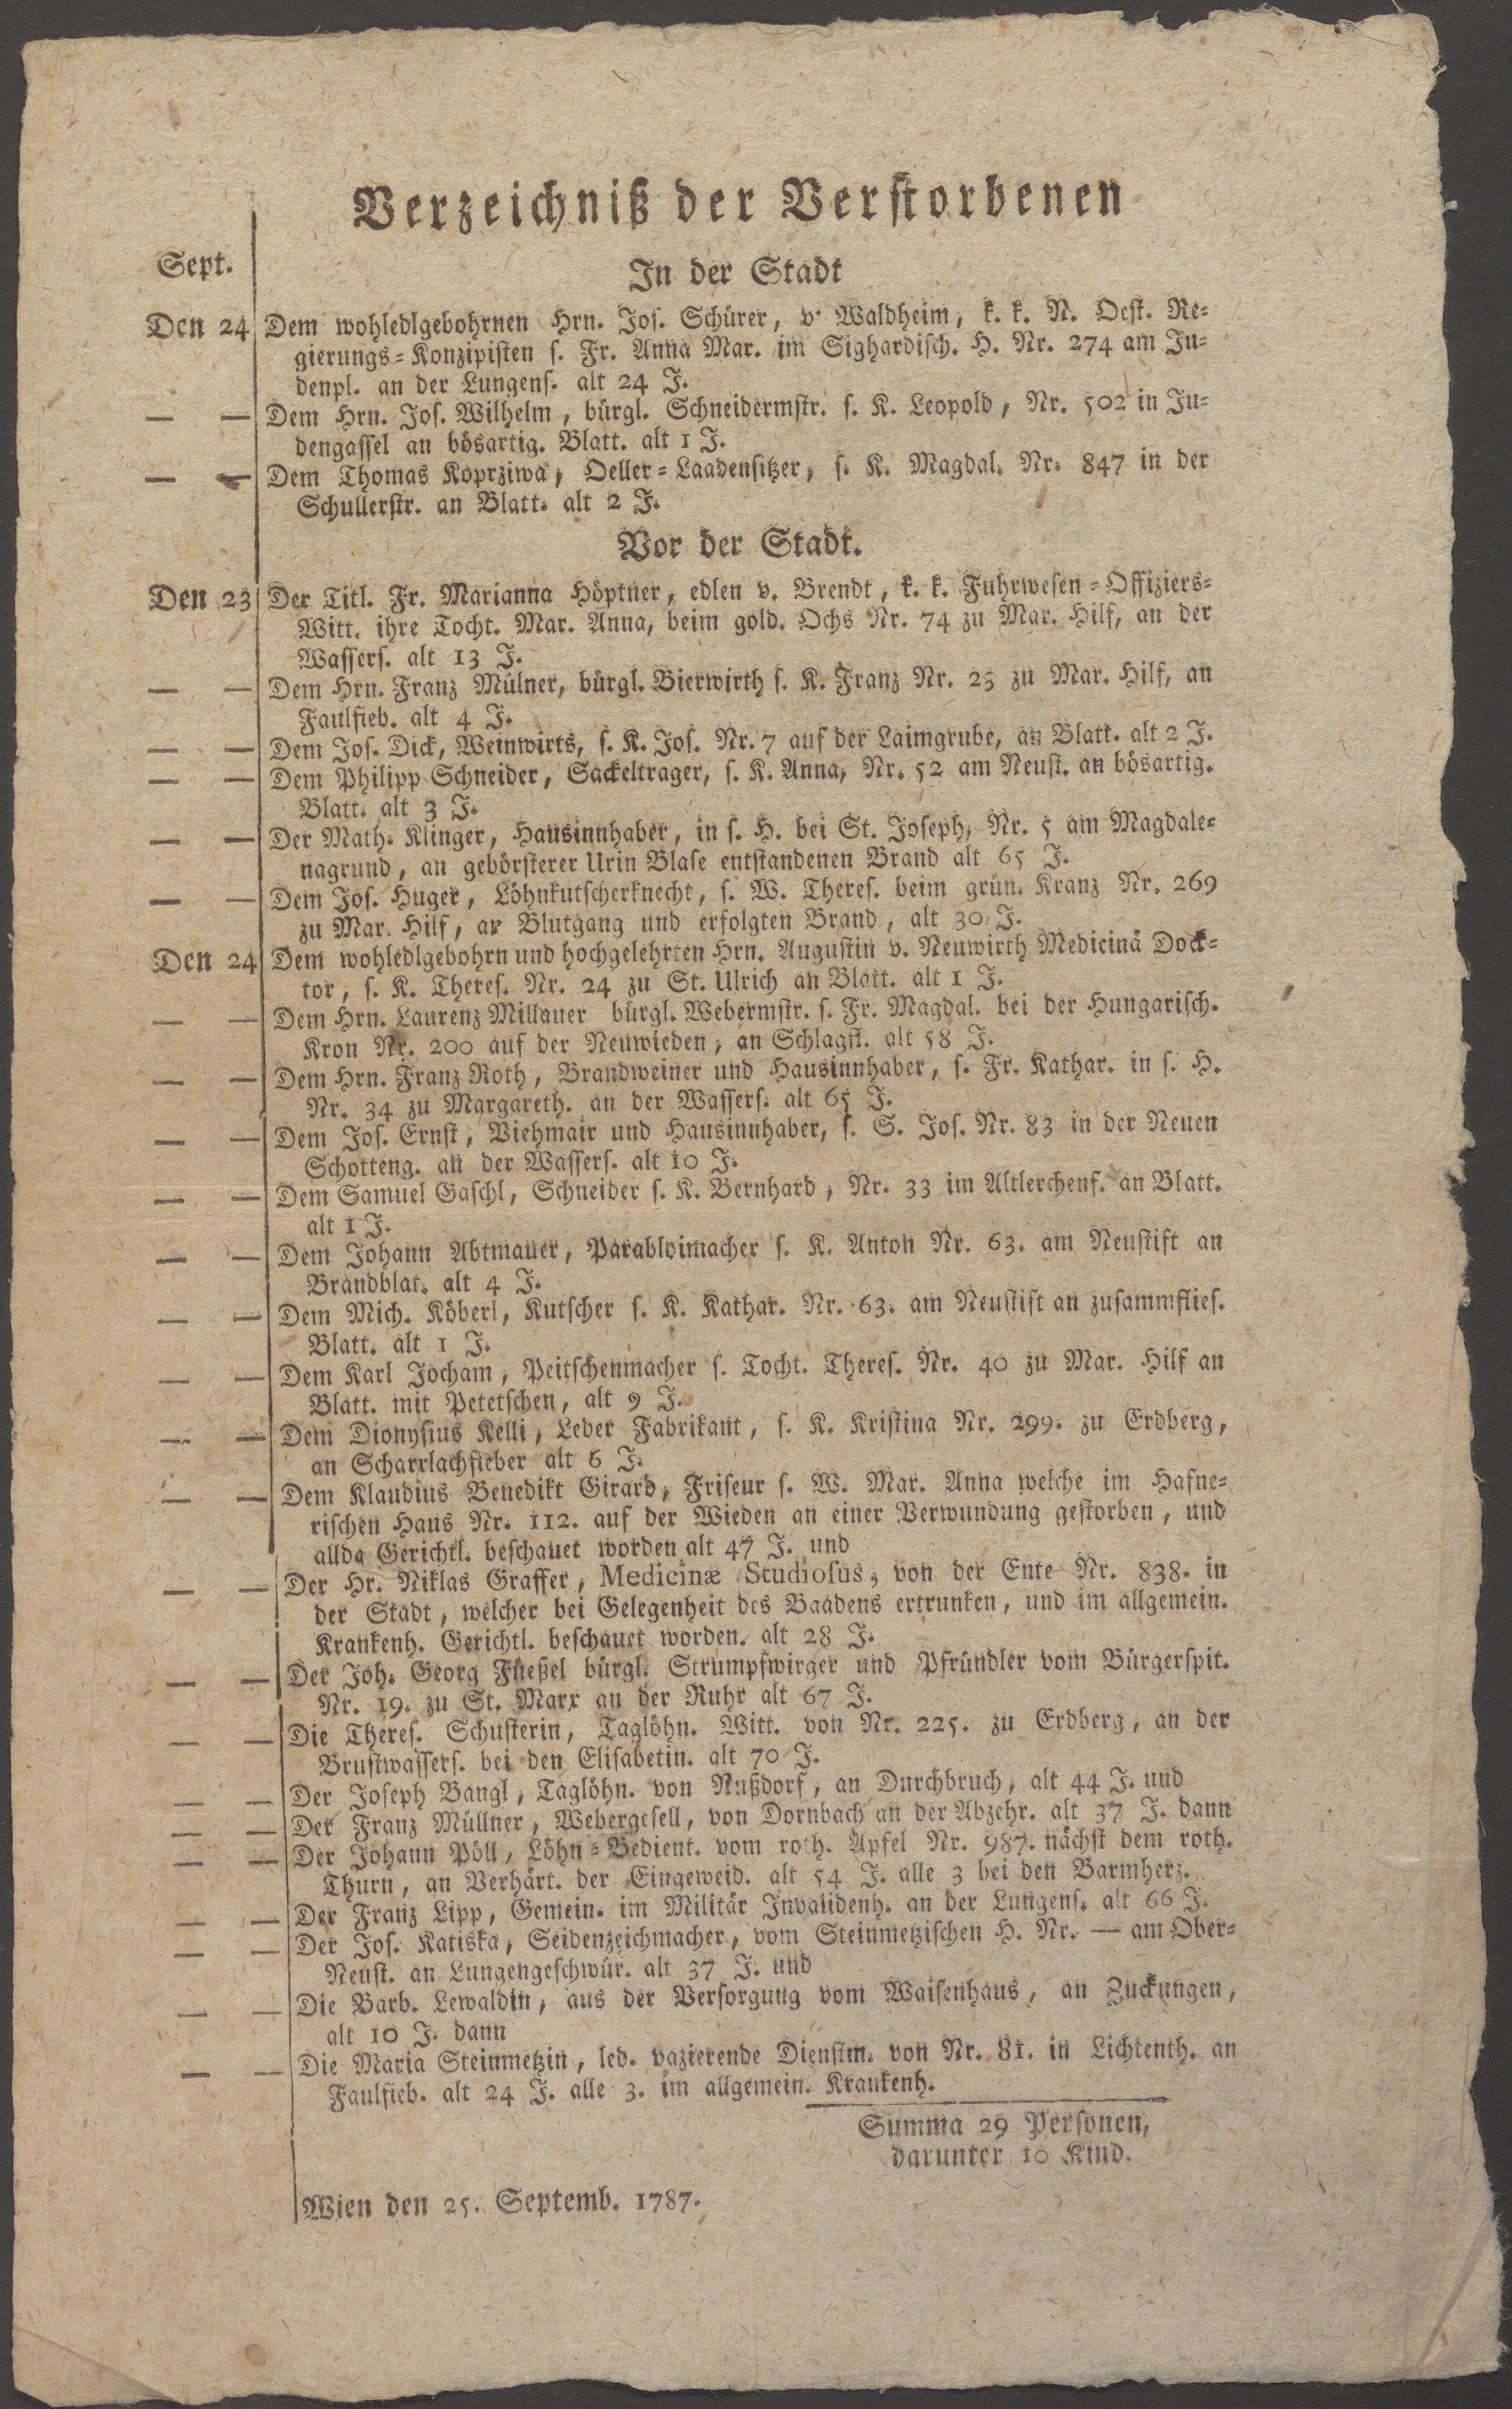 Verzeichniß der Verstorbenen
Sept.
In der Stadt
Den 24 Dem wohledlgebohrnen Hrn. Jos. Schürer, v. Waldheim, k. k. N. Oest. Re-
gierungs-Konzipisten s. Fr. Anna Mar. im Sighardisch. H. Nr. 274 am Ju-
denpl. an der Lungens. alt 24 J.
— — Dem Hrn. Jos. Wilhelm, bürgl. Schneidermstr. s. K. Leopold, Nr. 502 in Ju-
dengassel an bösartig. Blatt. alt 1 J.
— — Dem Thomas Koprziwa, Oeller-Laadensitzer, s. K. Magdal. Nr. 847 in der
Schullerstr. an Blatt. alt 2 J.
Vor der Stadt.
Den 23 Der Titl. Fr. Marianna Höptner, edlen v. Brendt, k. k. Fuhrwesen-Offiziers-
Witt. ihre Tocht. Mar. Anna, beim gold. Ochs Nr. 74 zu Mar. Hilf, an der
Wassers. alt 13 J.
— — Dem Hrn. Franz Mülner, bürgl. Bierwirth s. K. Franz Nr. 25 zu Mar. Hilf, an
Faulfieb. alt 4 J.
— — Dem Jos. Dick, Weinwirts, s. K. Jos. Nr. 7 auf der Laimgrube, an Blatt. alt 2 J.
— — Dem Philipp Schneider, Sackeltrager, s. K. Anna, Nr. 52 am Neust. an bösartig.
Blatt. alt 3 J.
— — Der Math. Klinger, Hausinnhaber, in s. H. bei St. Joseph, Nr. 5 am Magdale-
nagrund, an gebörsterer Urin Blase entstandenen Brand alt 65 J.
— — Dem Jos. Huger, Löhnkutscherknecht, s. W. Theres. beim grün. Kranz Nr. 269
zu Mar. Hilf, an Blutgang und erfolgten Brand, alt 30 J.
Den 24 Dem wohledlgebohrn und hochgelehrten Hrn. Augustin v. Neuwirth Medicinä Dock-
tor, s. K. Theres. Nr. 24 zu St. Ulrich an Blatt. alt 1 J.
— — Dem Hrn. Laurenz Millauer bürgl. Webermstr. s. Fr. Magdal. bei der Hungarisch.
Kron Nr. 200 auf der Neuwieden, an Schlagfl. alt 58 J.
— — Dem Hrn. Franz Roth, Brandweiner und Hausinnhaber, s. Fr. Kathar. in s. H.
Nr. 34 zu Margareth. an der Wassers. alt 65 J.
— — Dem Jos. Ernst, Viehmair und Hausinnhaber, s. S. Jos. Nr. 83 in der Neuen
Schotteng. an der Wassers. alt 10 J.
— — Dem Samuel Gaschl, Schneider s. K. Bernhard, Nr. 33 im Altlerchenf. an Blatt.
alt 1 J.
— — Dem Johann Abtmauer, Parabloimacher s. K. Anton Nr. 63. am Neustift an
Brandblat. alt 4 J.
— — Dem Mich. Köberl, Kutscher s. K. Kathar. Nr. 63. am Neustift an zusammflies.
Blatt. alt 1 J.
— — Dem Karl Jocham, Peitschenmacher s. Tocht. Theres. Nr. 40 zu Mar. Hilf an
Blatt. mit Petetschen, alt 9 J.
— — Dem Dionysius Kelli, Leder Fabrikant, s. K. Kristina Nr. 299. zu Erdberg,
an Scharrlachfieber alt 6 J.
— — Dem Klaudius Benedikt Girard, Friseur s. W. Mar. Anna welche im Hafne-
rischen Haus Nr. 112. auf der Wieden an einer Verwundung gestorben, und
allda Gerichtl. beschauet worden alt 47 J. und
— — Der Hr. Niklas Graffer, Medicinæ Studiosus, von der Ente Nr. 838. in
der Stadt, welcher bei Gelegenheit des Baadens ertrunken, und im allgemein.
Krankenh. Gerichtl. beschauet worden. alt 28 J.
— — Der Joh. Georg Füeßel bürgl. Strumpfwirger und Pfründler vom Bürgerspit.
Nr. 19. zu St. Marx an der Ruhr alt 67 J.
— — Die Theres. Schusterin, Taglöhn. Witt. von Nr. 225. zu Erdberg, an der
Brustwassers. bei den Elisabetin. alt 70 J.
— — Der Joseph Bangl, Taglöhn. von Nußdorf, an Durchbruch, alt 44 J. und
— — Der Franz Müllner, Webergesell, von Dornbach an der Abzehr. alt 37 J. dann
— — Der Johann Pöll, Löhn-Bedient. vom roth. Apfel Nr. 987. nächst dem roth.
Thurn, an Verhärt. der Eingeweid. alt 54 J. alle 3 bei den Barmherz.
— — Der Franz Lipp, Gemein. im Militär Invalidenh. an der Lungens. alt 66 J.
— — Der Jos. Katiska, Seidenzeichmacher, vom Steinmetzischen H. Nr. — am Ober-
Neust. an Lungengeschwür. alt 37 J. und
— — Die Barb. Lewaldin, aus der Versorgung vom Waisenhaus, an Zuckungen,
alt 10 J. dann
— — Die Maria Steinmetzin, led. vazierende Dienstm. von Nr. 81. in Lichtenth. an
Faulfieb. alt 24 J. alle 3. im allgemein. Krankenh.
Summa 29 Personen,
darunter 10 Kind.
Wien den 25. Septemb. 1787.